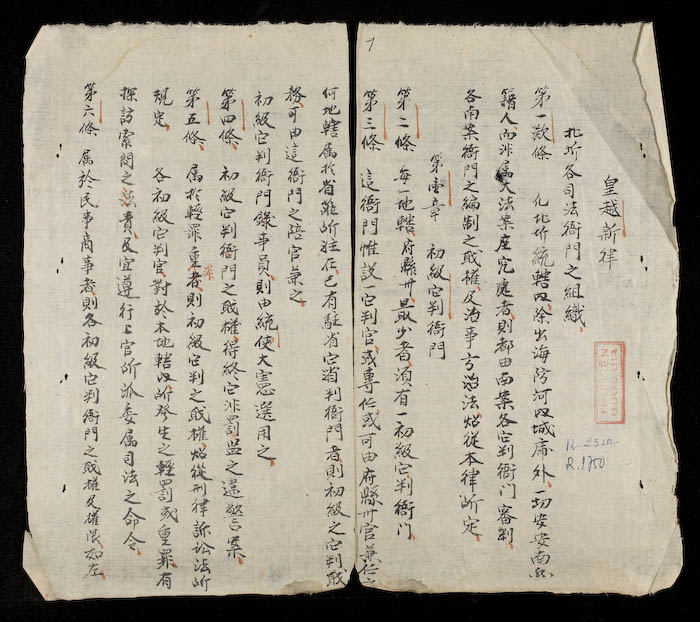 7
皇越新律
北圻各司法衙門之組織
第一款條 凡北圻統轄内除出海防河内城庯外一切安安南
籍人而非屬大法案座究處者則都由南案各定判衙門審判
各南案衙門之編制之职權及治事方法照從本律所定
第壹章 初級定判衙門
第二條 每一地轄府縣卅最少者須有一初級定判衙門
第三條 這衙門惟設一定判官或專任或可由府縣卅官兼任之
何地轄屬於省莅所驻在已有駐省定判衙門者則初級之定判職
務可由這衙門之陪官兼之
初級定判衙門錄事員則由統使大憲選用之
第四條 初級定判衙門之职權得終定判罰益之違警案
第五條 屬於輕罪重罪者則初級定判之职權照從刑律訴訟法所
規定 各初級定判官對於本地轄内所發生之輕罰或重罪有
探訪索問之責及宜遵行上官所派委屬司法之命令
第六條 屬於民事商事者則各初級定判衙門之职權及權限如左
THU VIEN
QUOC GIA
R.1750